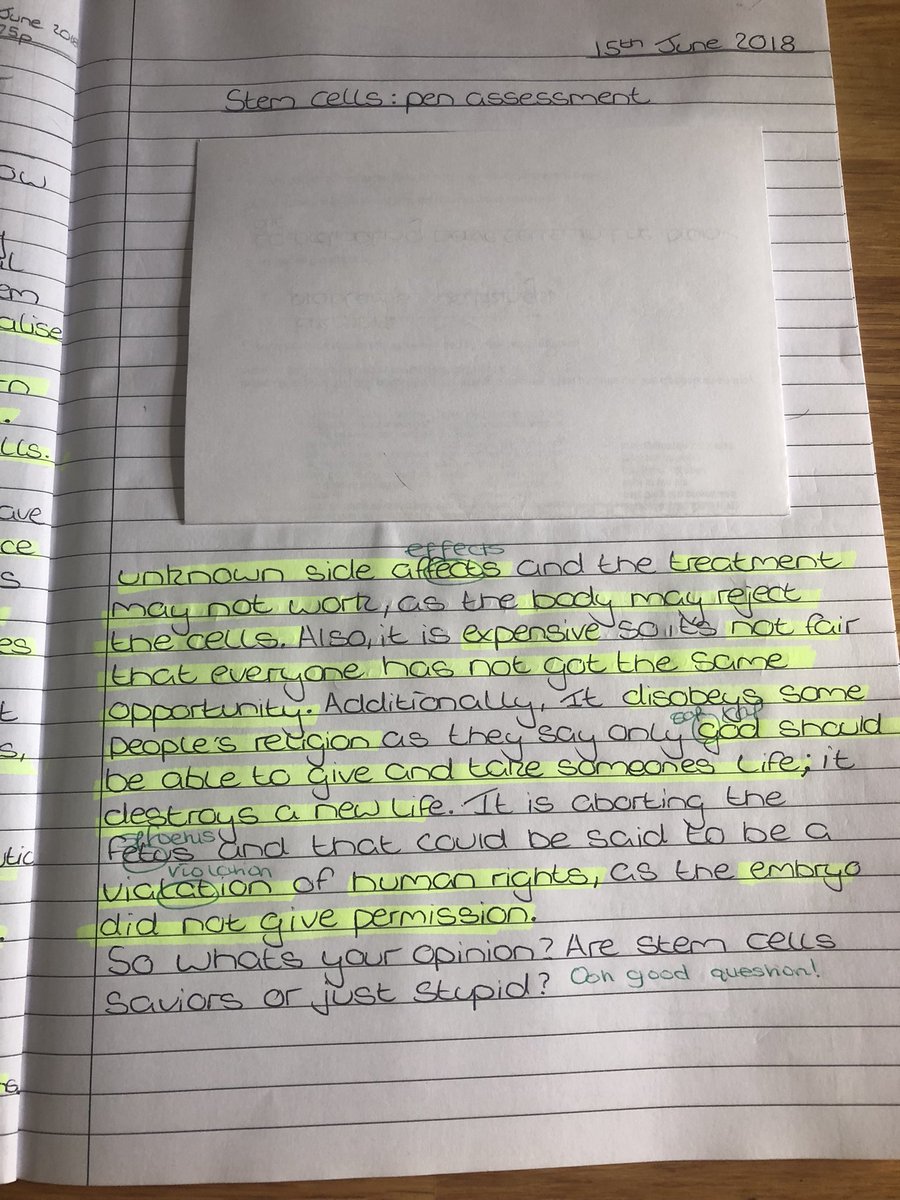 June 2018
15th June 2018
Stem cells: pen assessment
ow
em
alise
lls.
ave
ce
es
effects
unknown side affects and the treatment
may not work, as the body may reject
the cells. Also, it is expensive so it's not fair
that everyone has not got the same
opportunity. Additionally, it disobeys some
people's religion as they say only god should
be able to give and take someones life; it
destroys a new life. It is aborting the
fetos and that could be said to be a
violation
viatation of human rights, as the embryo
did not give permission.
So whats your opinion? Are stem cells
saviors or just stupid? Ooh good question!